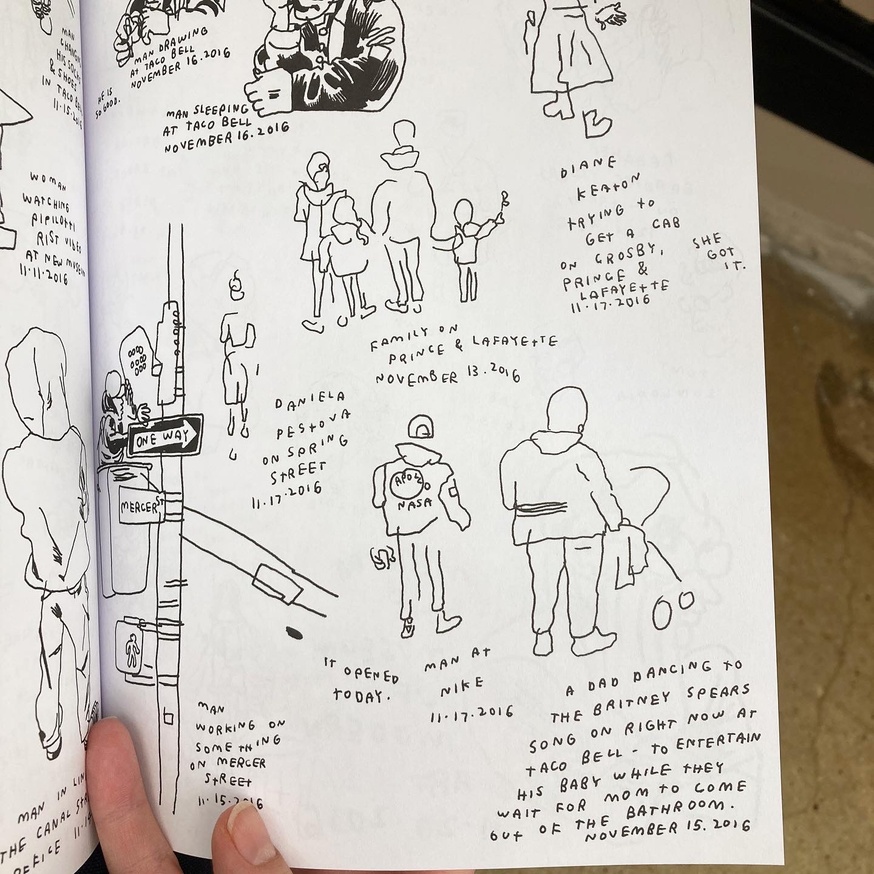 MAN
CHANGING
HIS SOCKS
& SHOES
IN TACO BELL
11.15.2016
WOMAN
WATCHING
PIPILOTTI
RIST VIDEO
AT NEW MUSEUM
11.11.2016
MAN IN LINE
THE CANAL
OFFICE
HE IS
SO GOOD.
MAN DRAWING
AT TACO BELL
NOVEMBER 16.2016
MAN SLEEPING
AT TACO BELL
NOVEMBER 16.2016
DIANE
KEATON
TRYING TO
GET A CAB
ON CROSBY,
PRINCE &
LAFAYETTE
11.17.2016
SHE
GOT
IT.
FAMILY ON
PRINCE & LAFAYETTE
NOVEMBER 13.2016
DANIELA
PESTOVA
ON SPRING
STREET
11.17.2016
ONE WAY
MERCER ST
APOLLO
NASA
IT OPENED
TODAY.
MAN AT
NIKE
11.17.2016
MAN
WORKING ON
SOMETHING
ON MERCER
STREET
11.15.2016
A DAD DANCING TO
THE BRITNEY SPEARS
SONG ON RIGHT NOW AT
TACO BELL - TO ENTERTAIN
HIS BABY WHILE THEY
WAIT FOR MOM TO COME
OUT OF THE BATHROOM.
NOVEMBER 15.2016